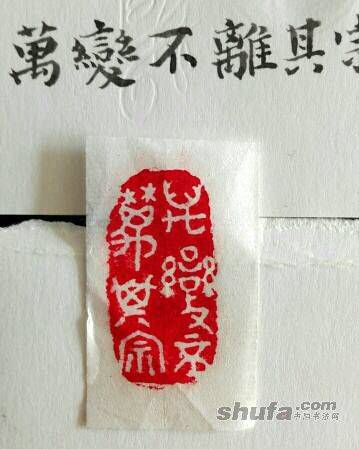 萬變不離其宗
萬變不
離其宗
shufa.com
中国书法网